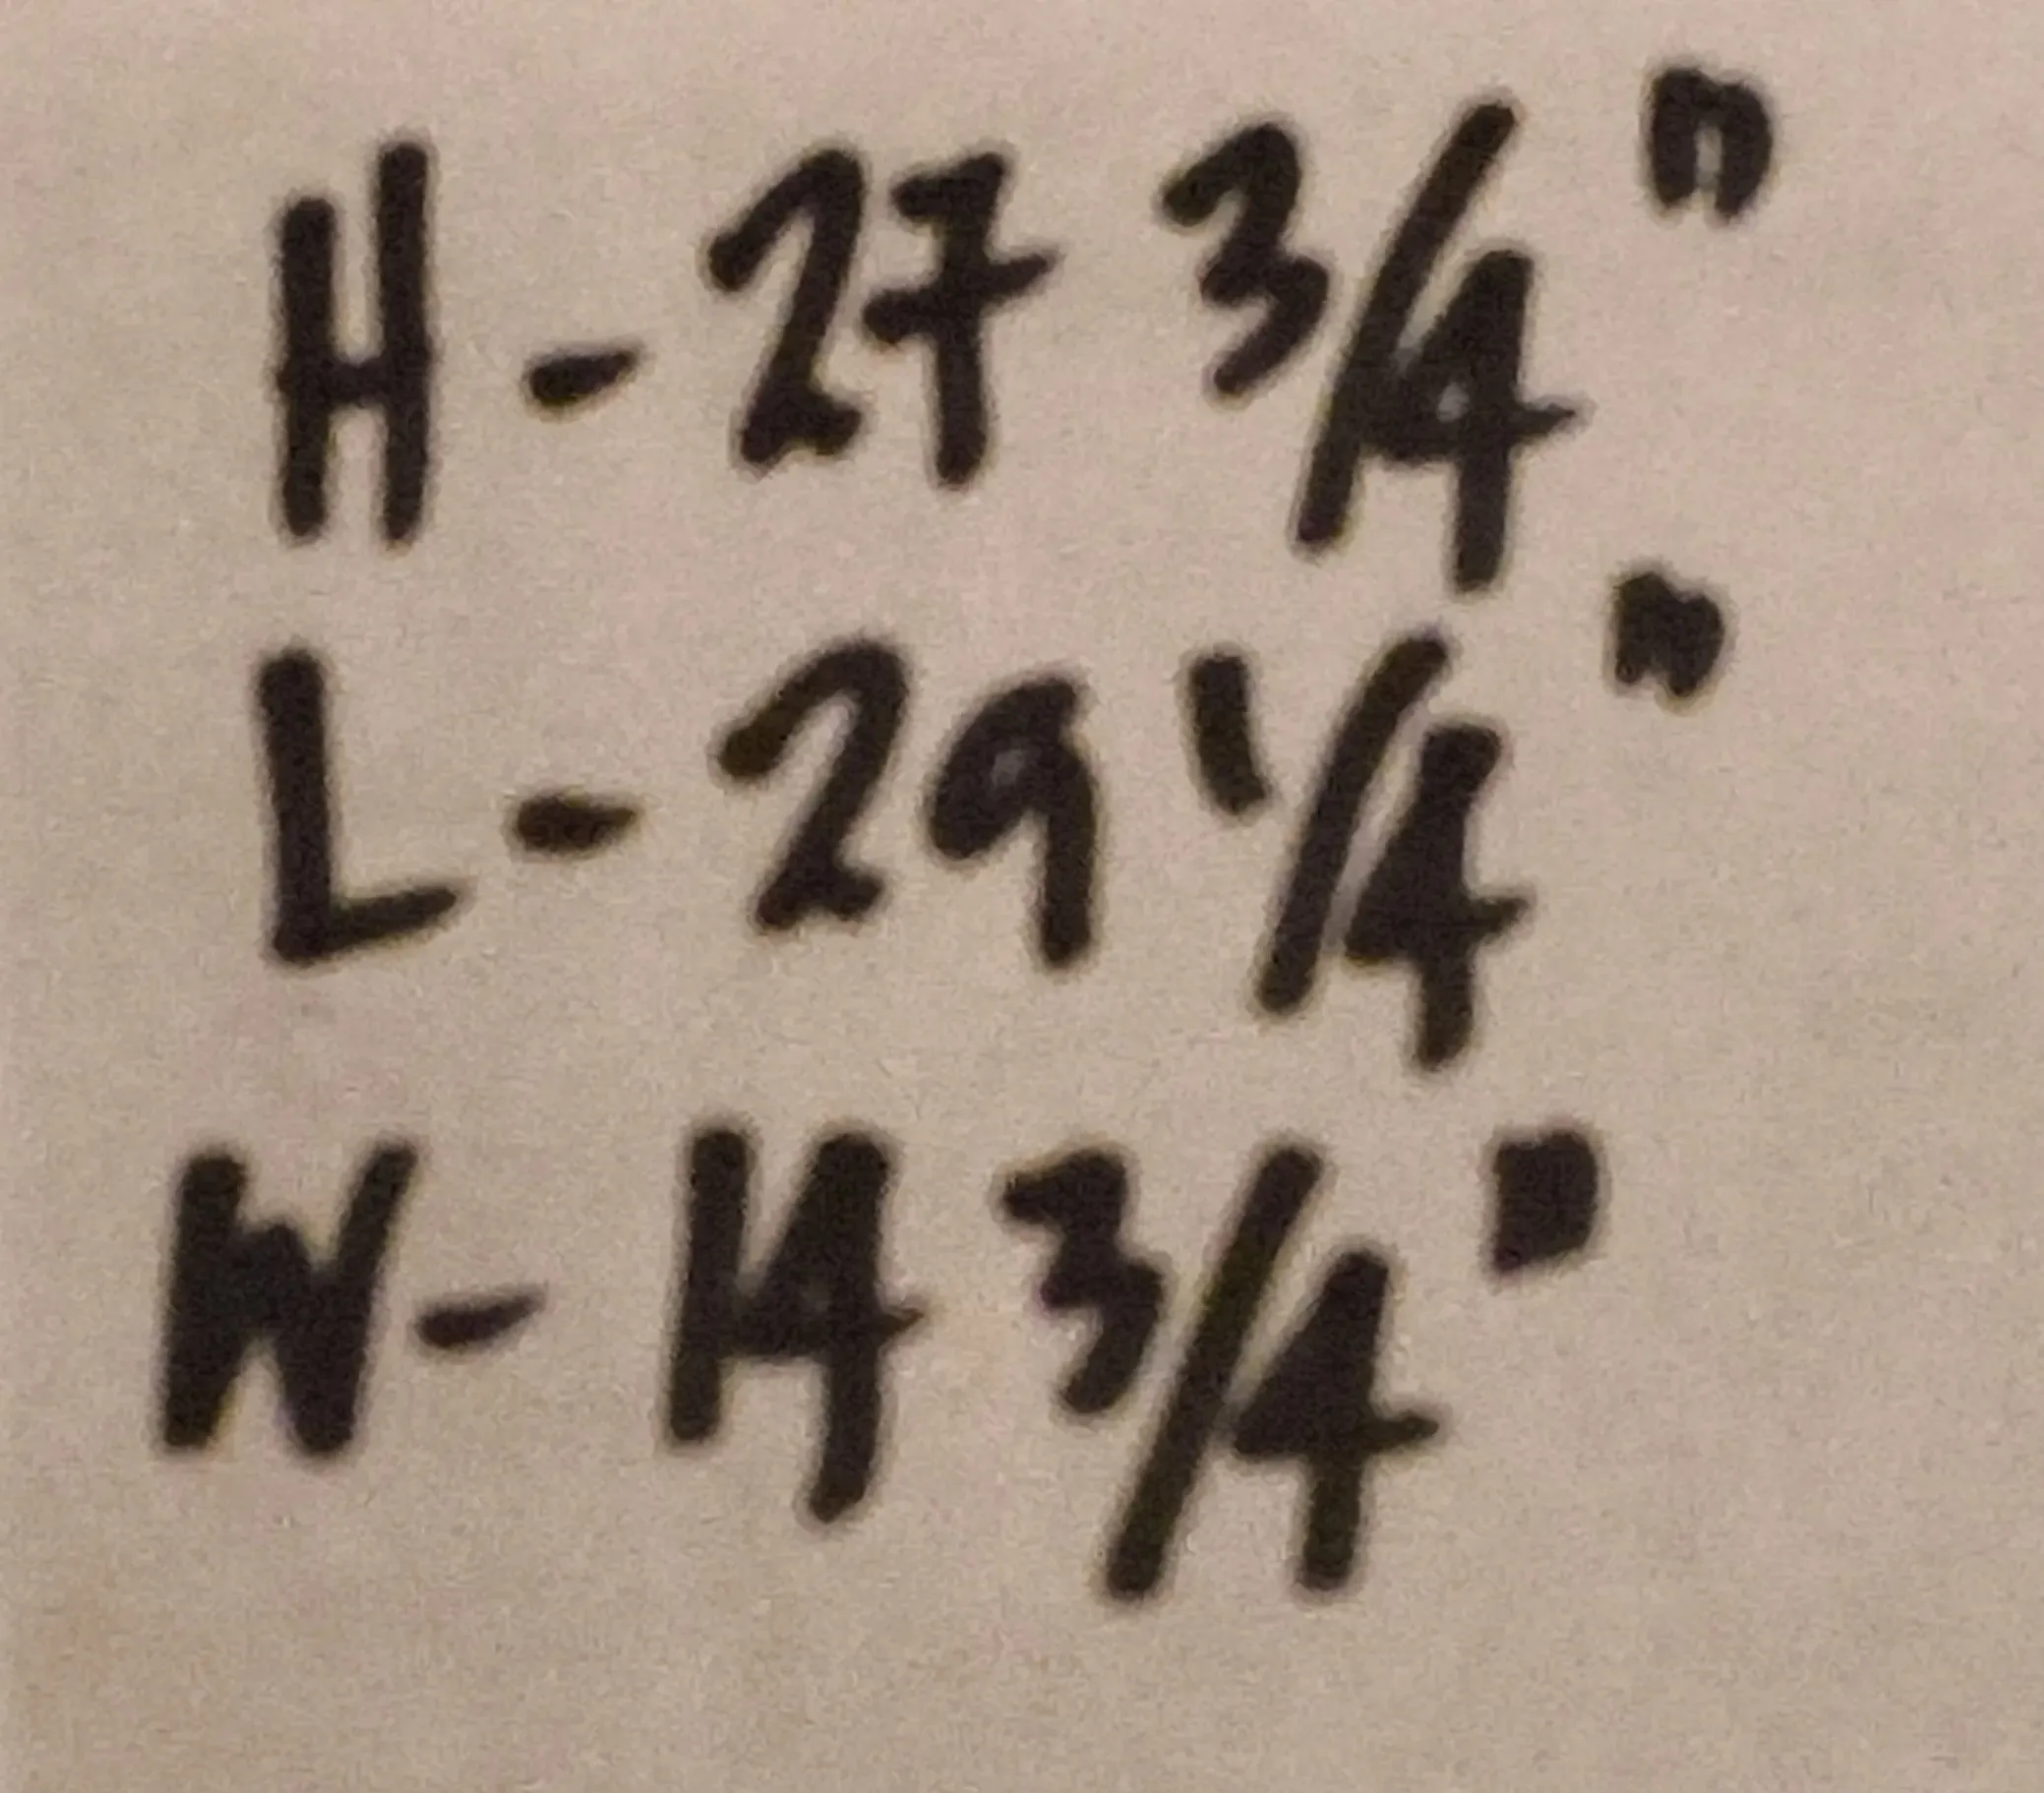 H - 27 3/4"
L - 29 1/4"
W - 14 3/4"